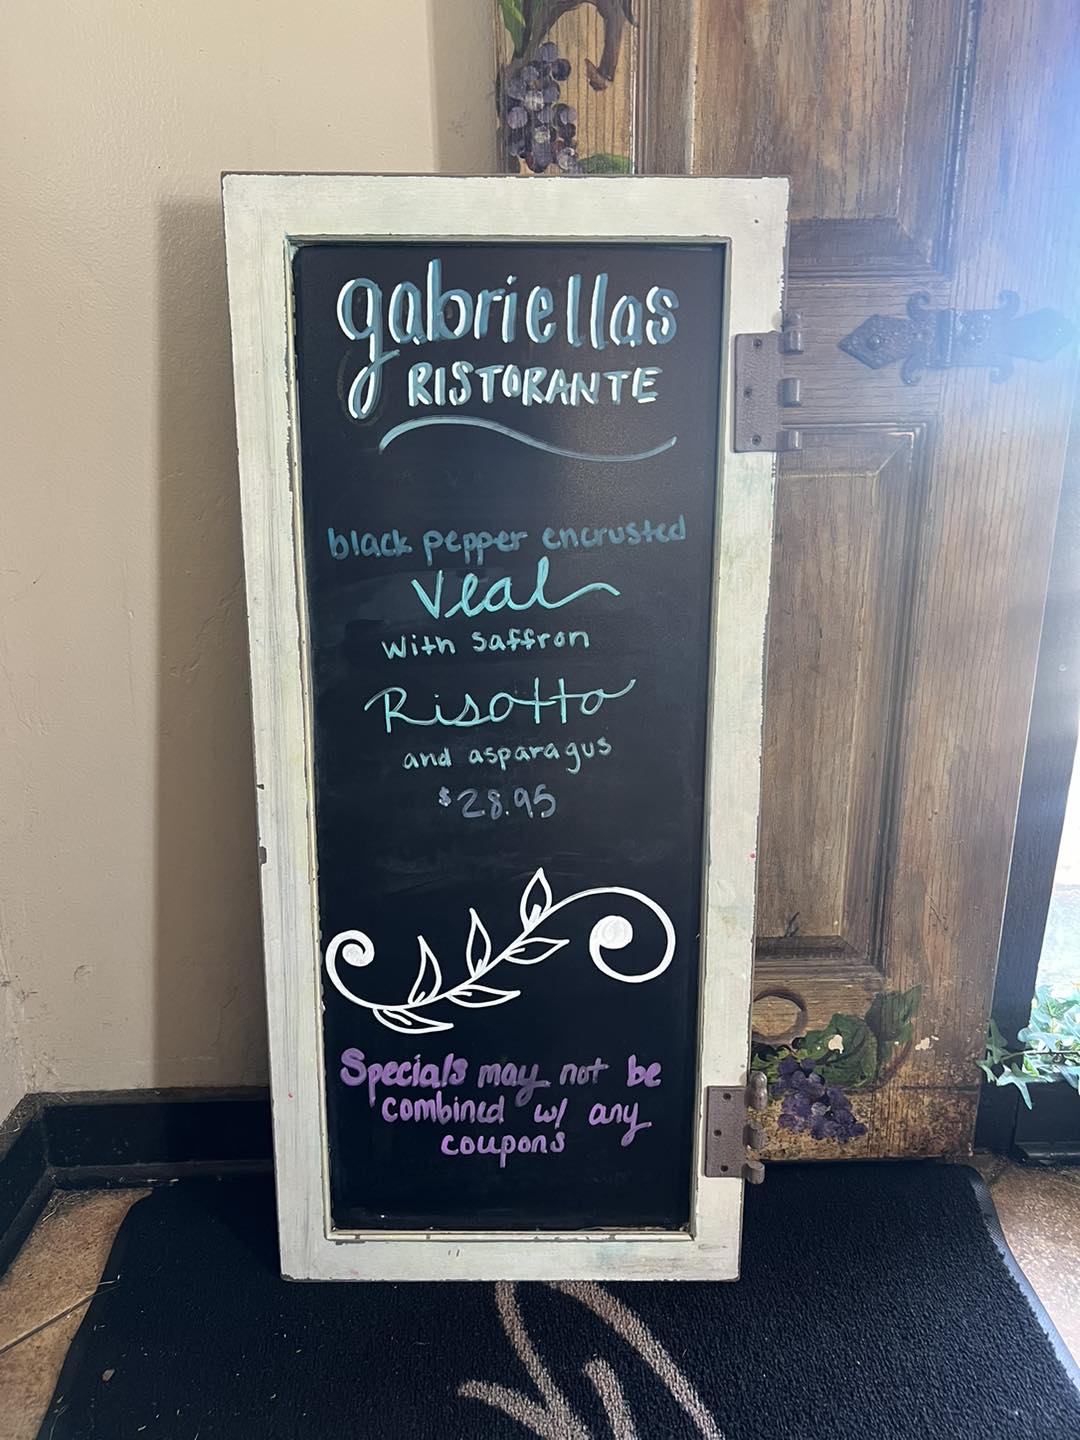 gabriellas
RISTORANTE
black pepper encrusted
Veal
with saffron
Risotto
and asparagus
$28.95
Specials may not be
combined w/ any
coupons